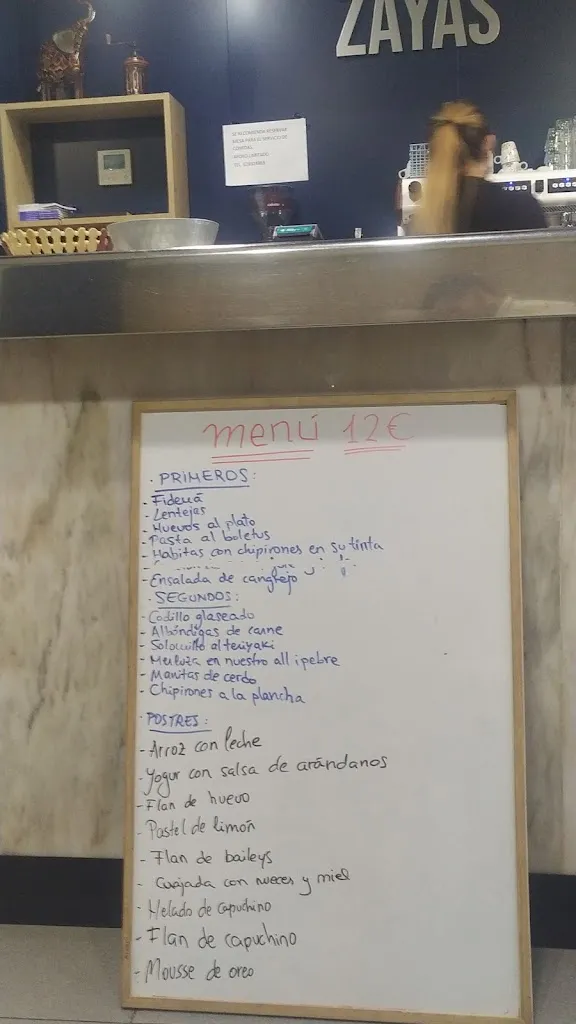 ZAYAS
menú 12€
· PRIMEROS:
- Fideuá
- Lentejas
- Huevos al plato
- Pasta al boletus
- Habitas con chipirones en su tinta
- Ensalada de cangrejo
· SEGUNDOS:
- Codillo glaseado
- Albóndigas de carne
- Solomillo al teriyaki
- Merluza en nuestro all i pebre
- Manitas de cerdo
- Chipirones a la plancha
· POSTRES:
- Arroz con leche
- Yogur con salsa de arándanos
- Flan de huevo
- Pastel de limón
- Flan de baileys
- Cuajada con nueces y miel
- Helado de capuchino
- Flan de capuchino
- Mousse de oreo